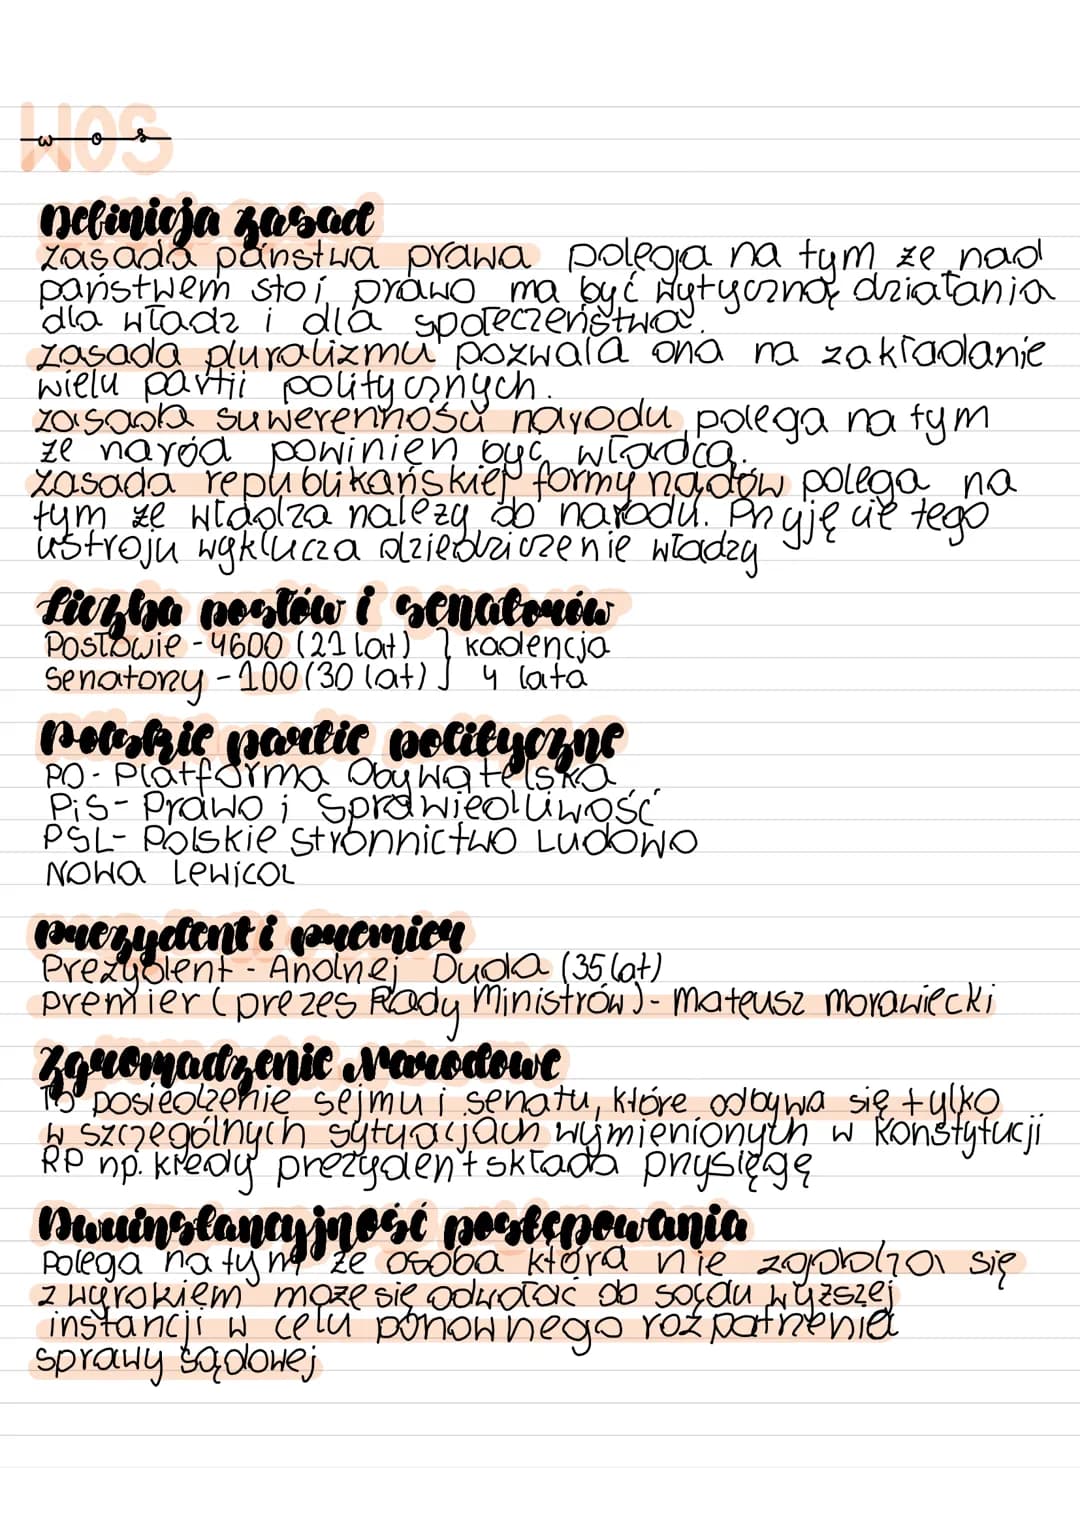 WOS
w o s
Definicja zasad
zasada państwa prawa polega na tym że nad
państwem stoi prawo ma być wytyczną działania
dla władz i dla społeczeństwa.
zasada pluralizmu pozwala ona na zakładanie
wielu partii politycznych.
zasada suwerenności narodu polega na tym
że naród powinien być władcą.
zasada republikańskiej formy rządów polega na
tym że władza należy do narodu. Przyjęcie tego
ustroju wyklucza dziedziczenie władzy
Liczba posłów i senatorów
Posłowie - 4600 (21 lat) ] kadencja
Senatorzy - 100 (30 lat) ] 4 lata
Polskie partie polityczne
PO - Platforma Obywatelska
PiS - Prawo i Sprawiedliwość
PSL - Polskie Stronnictwo Ludowo
Nowa Lewica
prezydent i premier
Prezydent - Andrzej Duda (35 lat)
premier (prezes Rady Ministrów) - Mateusz Morawiecki
Zgromadzenie Narodowe
To posiedzenie sejmu i senatu, które odbywa się tylko
w szczególnych sytuacjach wymienionych w Konstytucji
RP np. kiedy prezydent składa przysięgę
Dwuinstancyjność postępowania
Polega na tym że osoba która nie zgadza się
z wyrokiem może się odwołać do sądu wyższej
instancji w celu ponownego rozpatrzenia
sprawy sądowej